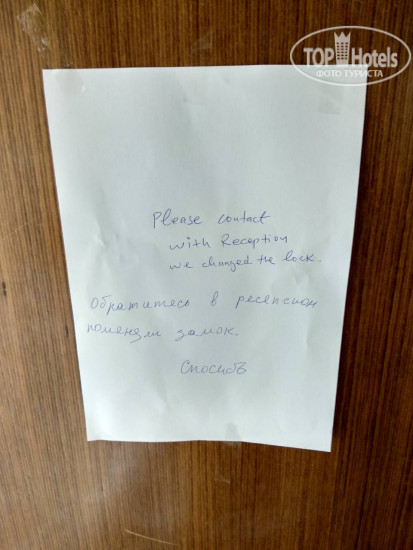 TOP Hotels
ФОТО ТУРИСТА
Please contact
with Reception
we changed the lock.
Обратитесь в ресепсион
поменяли замок.
Спосибо